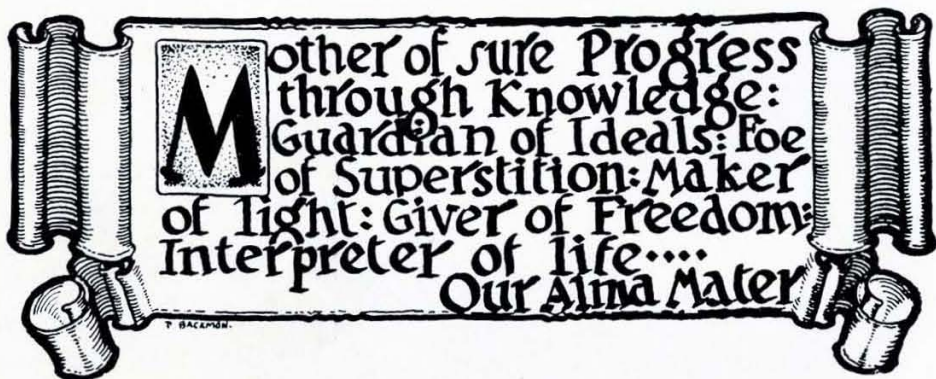 Mother of sure Progress
through Knowledge:
Guardian of Ideals: Foe
of Superstition: Maker
of Light: Giver of Freedom:
Interpreter of life....
Our Alma Mater
P BACKMON.